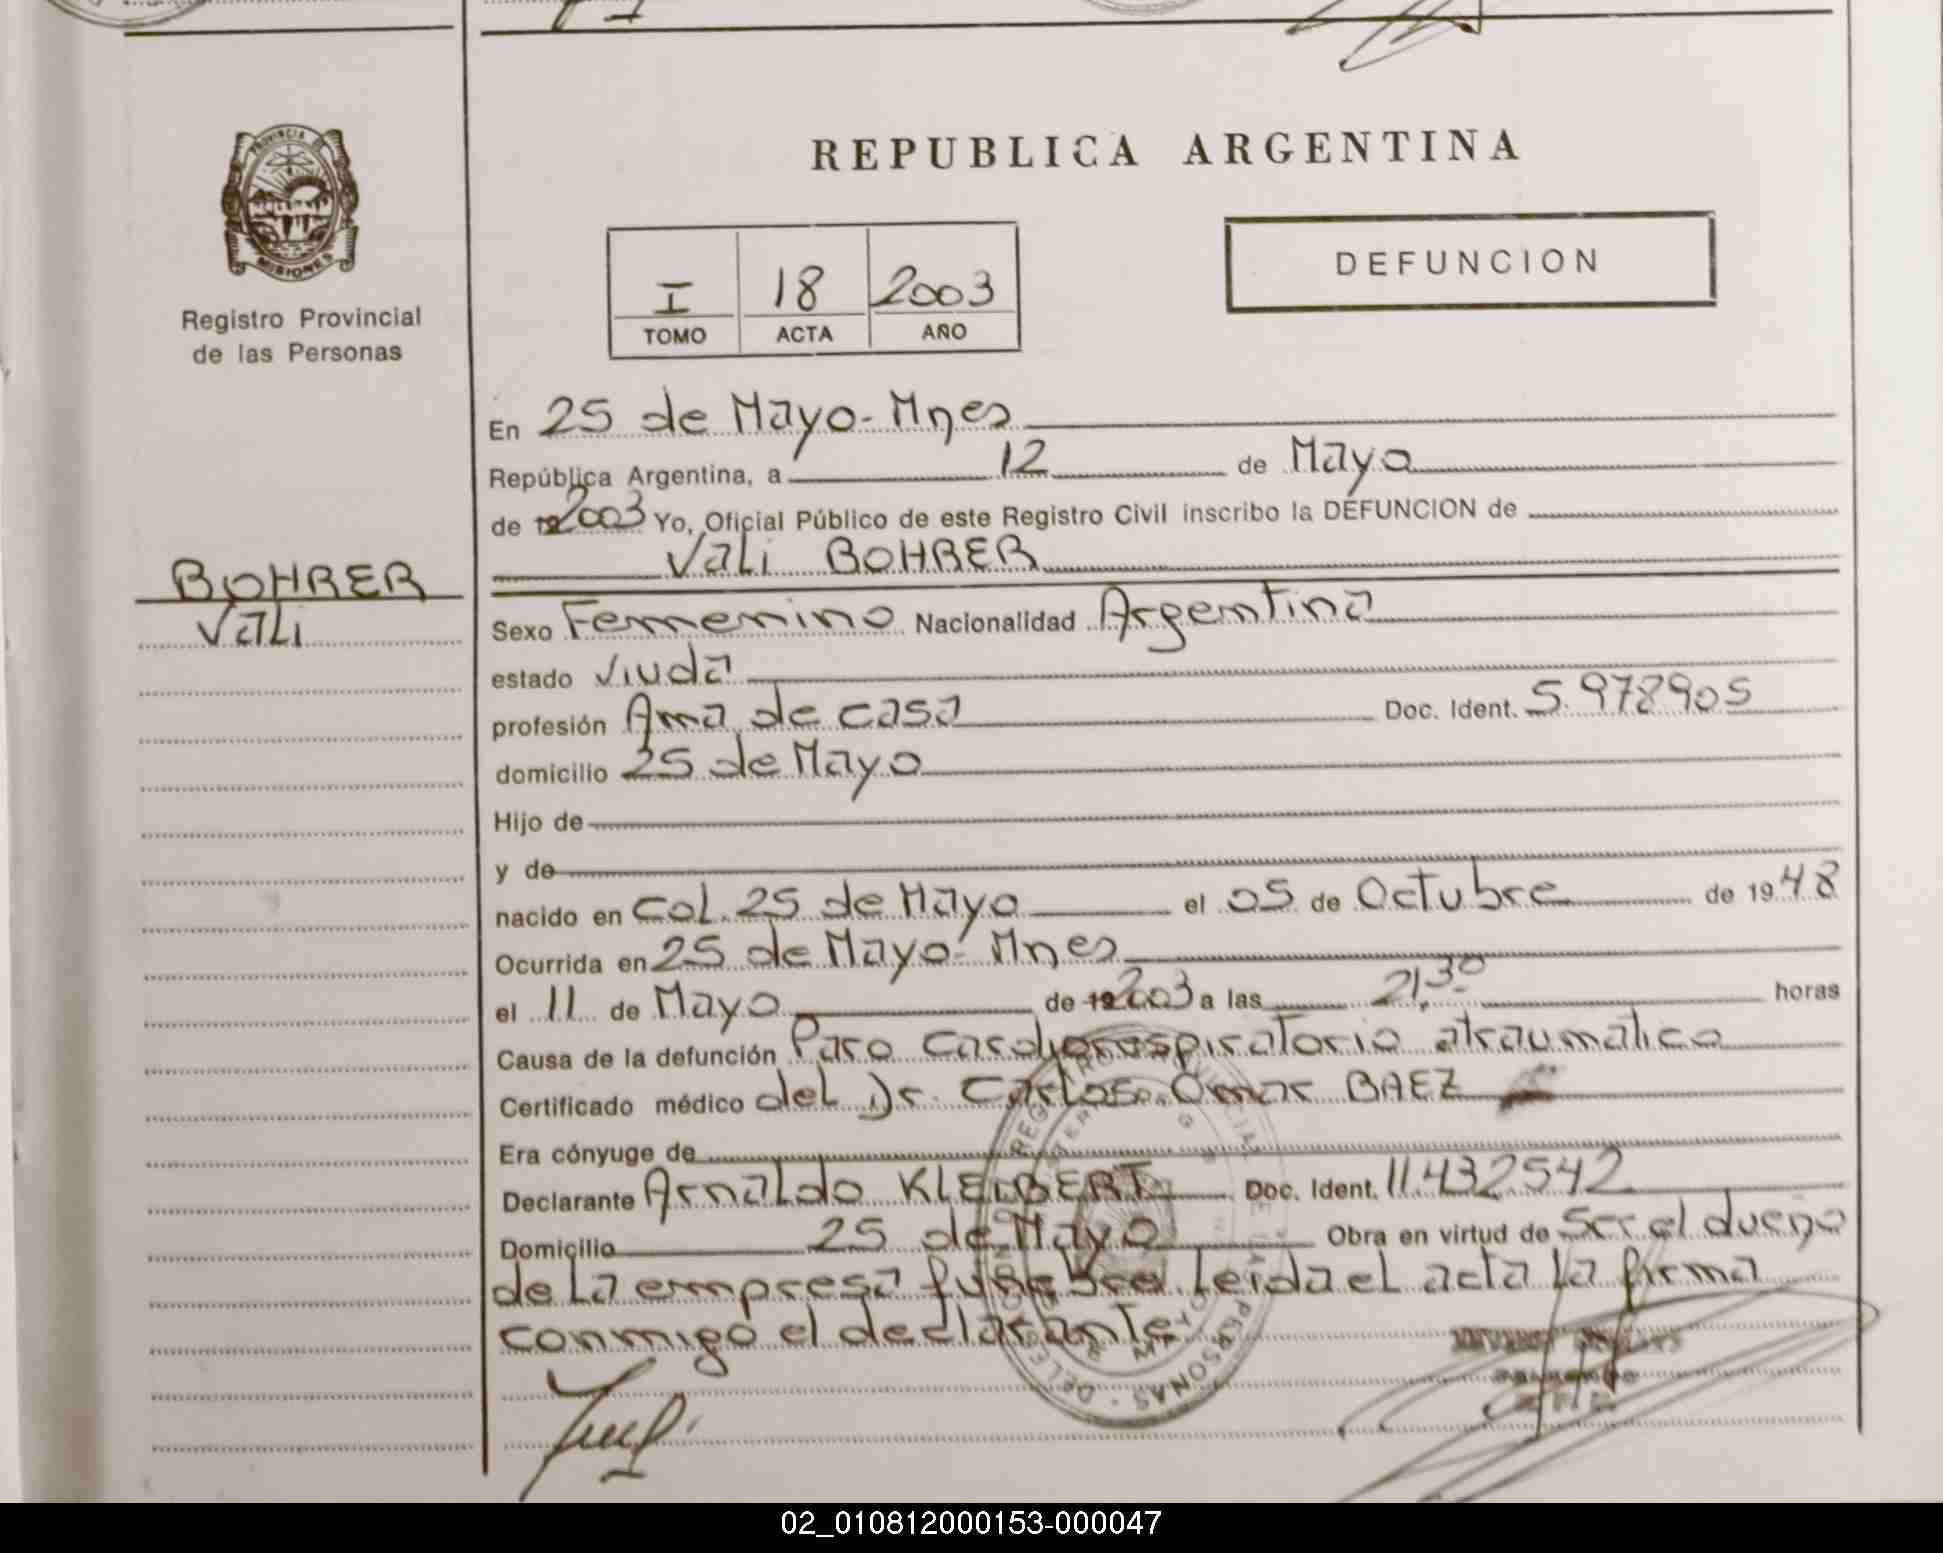 PROVINCIA
MISIONES
Registro Provincial
de las Personas
REPUBLICA ARGENTINA
I 18 2003
TOMO ACTA AÑO
DEFUNCION
En 25 de Mayo-Mnes
República Argentina, a 12 de Mayo
de 192003 Yo, Oficial Público de este Registro Civil inscribo la DEFUNCION de
Vali BOHRER
BOHRER
Vali
Sexo Femenino Nacionalidad Argentina
estado Viuda
profesión Ama de casa Doc. Ident. 5.978905
domicilio 25 de Mayo
Hijo de
y de
nacido en Col. 25 de Mayo el 05 de Octubre de 1948
Ocurrida en 25 de Mayo-Mnes
el 11 de Mayo de 192003 a las 21,30 horas
Causa de la defunción Paro Cardiorespiratorio atraumatico
Certificado médico del Dr. Carlos Omar BAEZ
Era cónyuge de
Declarante Arnaldo KLEIBERT Doc. Ident. 11432542
Domicilio 25 de Mayo Obra en virtud de Ser el dueño
de la empresa funebre. leida el acta la firma
conmigo el declarante
02_010812000153-000047